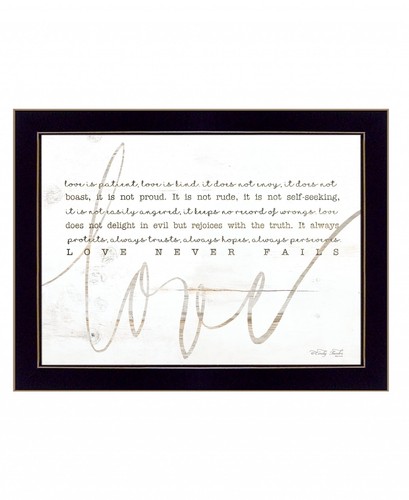 love is patient, love is kind. it does not envy, it does not
boast, it is not proud. It is not rude, it is not self-seeking,
it is not easily angered, it keeps no record of wrongs. love
does not delight in evil but rejoices with the truth. It always
protects, always trusts, always hopes, always perseveres.
LOVE NEVER FAILS
love